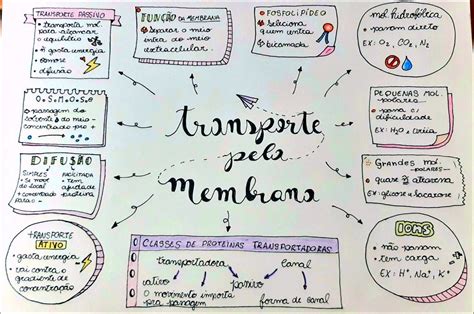 TRANSPORTE PASSIVO
• transporta
mol para
alcançar o
equilíbrio
• ñ gasta energia
• osmose
• difusão
FUNÇÃO DA MEMBRANA
• separar o meio
intra do meio
extracelular
FOSFOLIPÍDEO
• seleciona
quem entra
• bicamada
mol hidrofóbica
• passam direto
EX: O₂, CO₂, N₂
O.S.M.O.S.E
• passagem do
solvente do meio -
concentrado pro +
transporte
pela
membrana
PEQUENAS MOL.
polares
• passa c/
dificuldade
EX: H₂O e Uréia
DIFUSÃO
SIMPLES
• se move
do local +
concentrado
para o -
FACILITADA
• tem
ajuda de
proteína
Grandes mol.
POLARES
• quase ñ atravessa
EX: glicose e sacarose
TRANSPORTE
ATIVO
• gasta energia
• vai contra o
gradiente de
concentração
CLASSES DE PROTEÍNAS TRANSPORTADORAS
transportadora canal
ativo passivo
O movimento importa
pra passagem
forma de canal
IONS
• não passam
• tem carga
EX: H⁺, Na⁺, K⁺